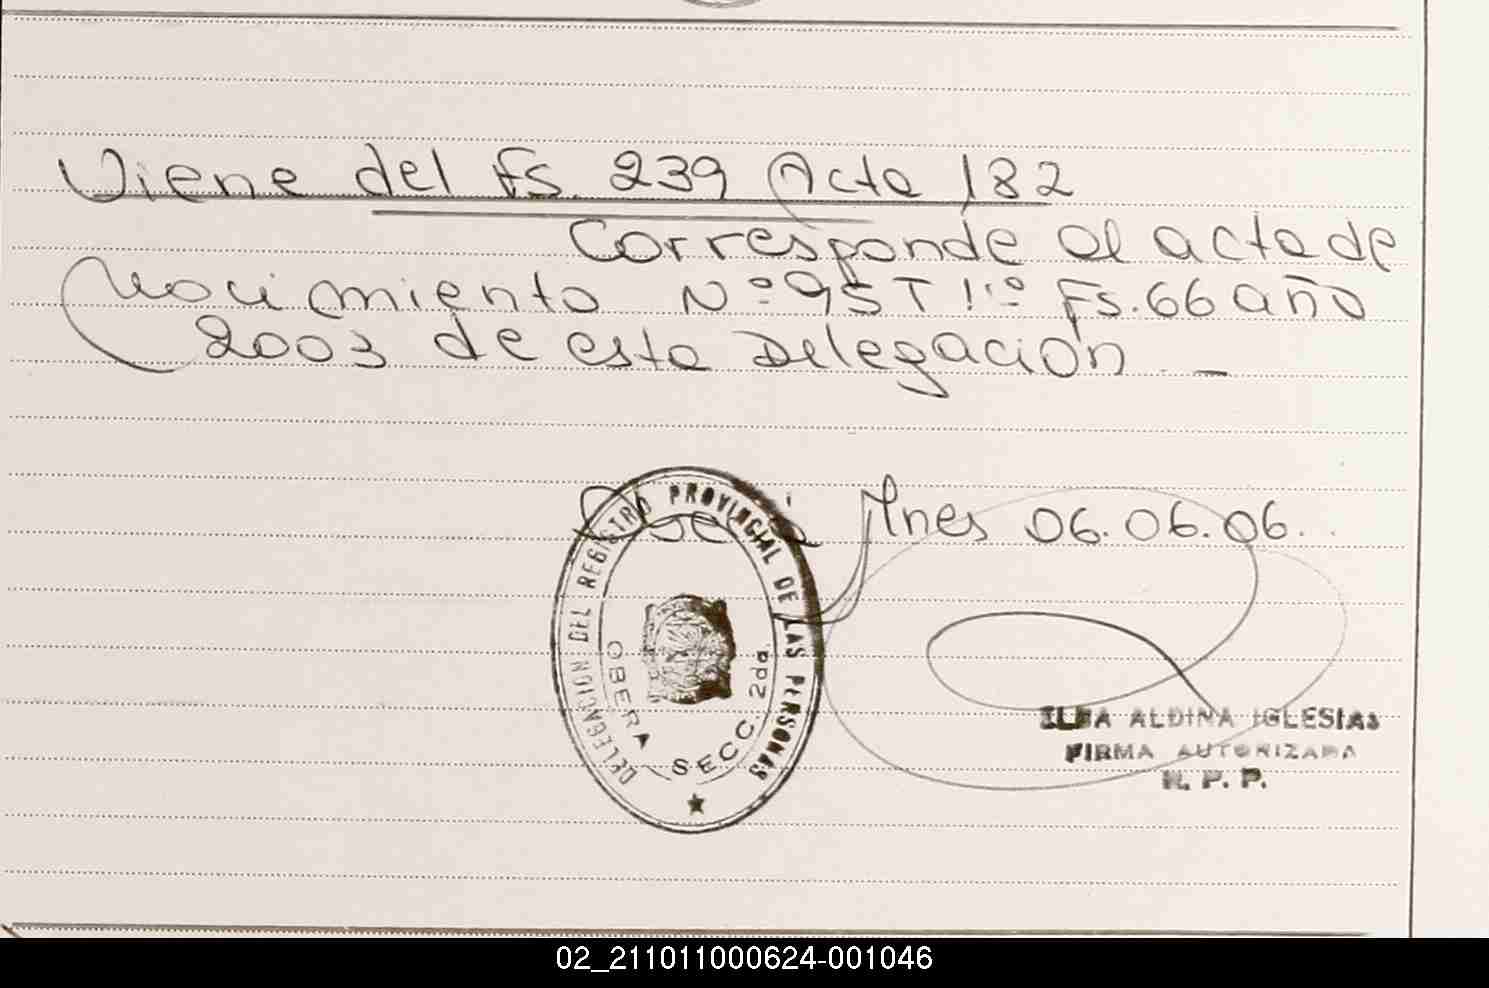 Viene del fs. 239 Acta 182
Corresponde al acta de
Nacimiento Nº 95 T 1º Fs. 66 año
2003 de esta Delegación. -
Ines 06.06.06..
DELEGACION DEL REGISTRO PROVINCIAL DE LAS PERSONAS
OBERA SECC. 2da
ALDINA IGLESIAS
FIRMA AUTORIZADA
R. P. P.
02_211011000624-001046